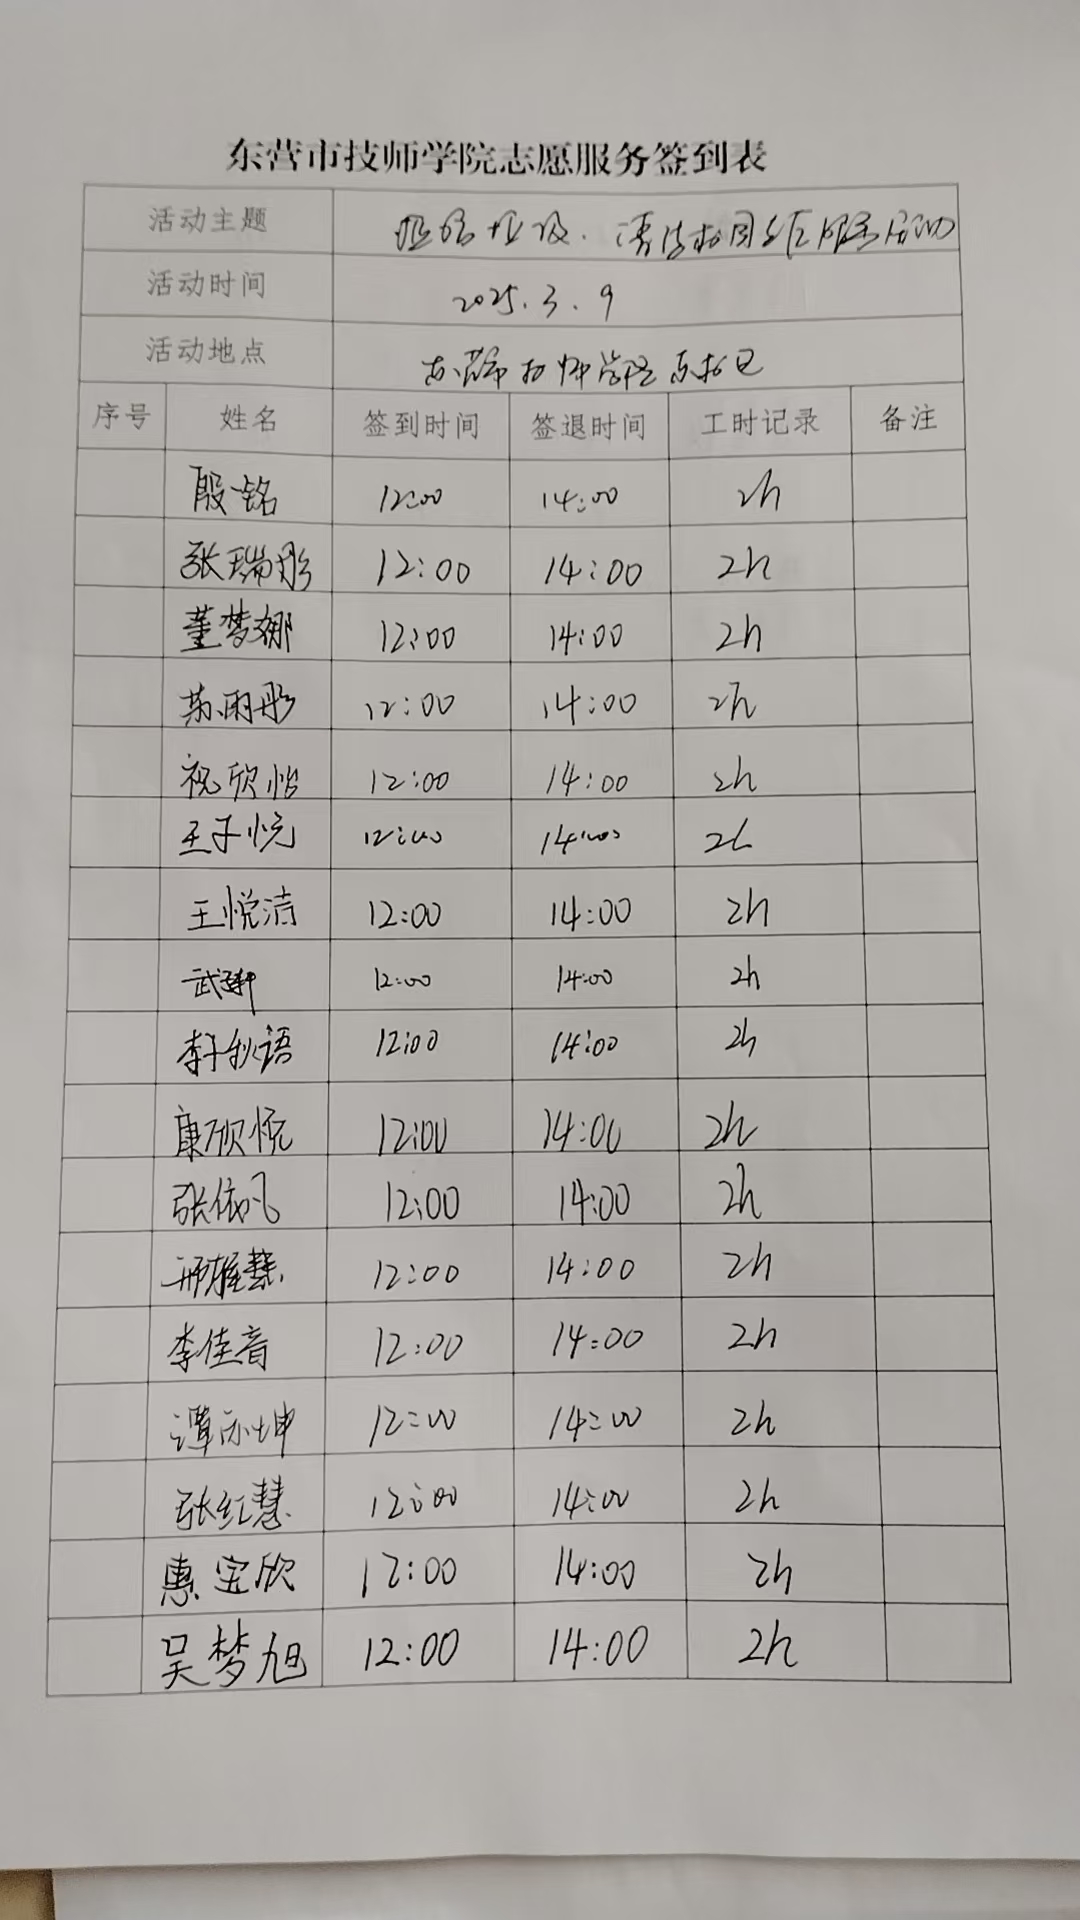 东营市技师学院志愿服务签到表
活动主题 垃圾、清洁校园 服务活动
活动时间 2025.3.9
活动地点 东营市技师学院东校区
序号 姓名 签到时间 签退时间 工时记录 备注
殷铭 12:00 14:00 2h
张瑞彤 12:00 14:00 2h
董梦娜 12:00 14:00 2h
苏雨彤 12:00 14:00 2h
祝欣怡 12:00 14:00 2h
王子悦 12:00 14:00 2h
王悦洁 12:00 14:00 2h
武 12:00 14:00 2h
李秋语 12:00 14:00 2h
康欣悦 12:00 14:00 2h
张依凡 12:00 14:00 2h
邢雅慧 12:00 14:00 2h
李佳音 12:00 14:00 2h
谭 坤 12:00 14:00 2h
张红慧 12:00 14:00 2h
惠宝欣 12:00 14:00 2h
吴梦旭 12:00 14:00 2h